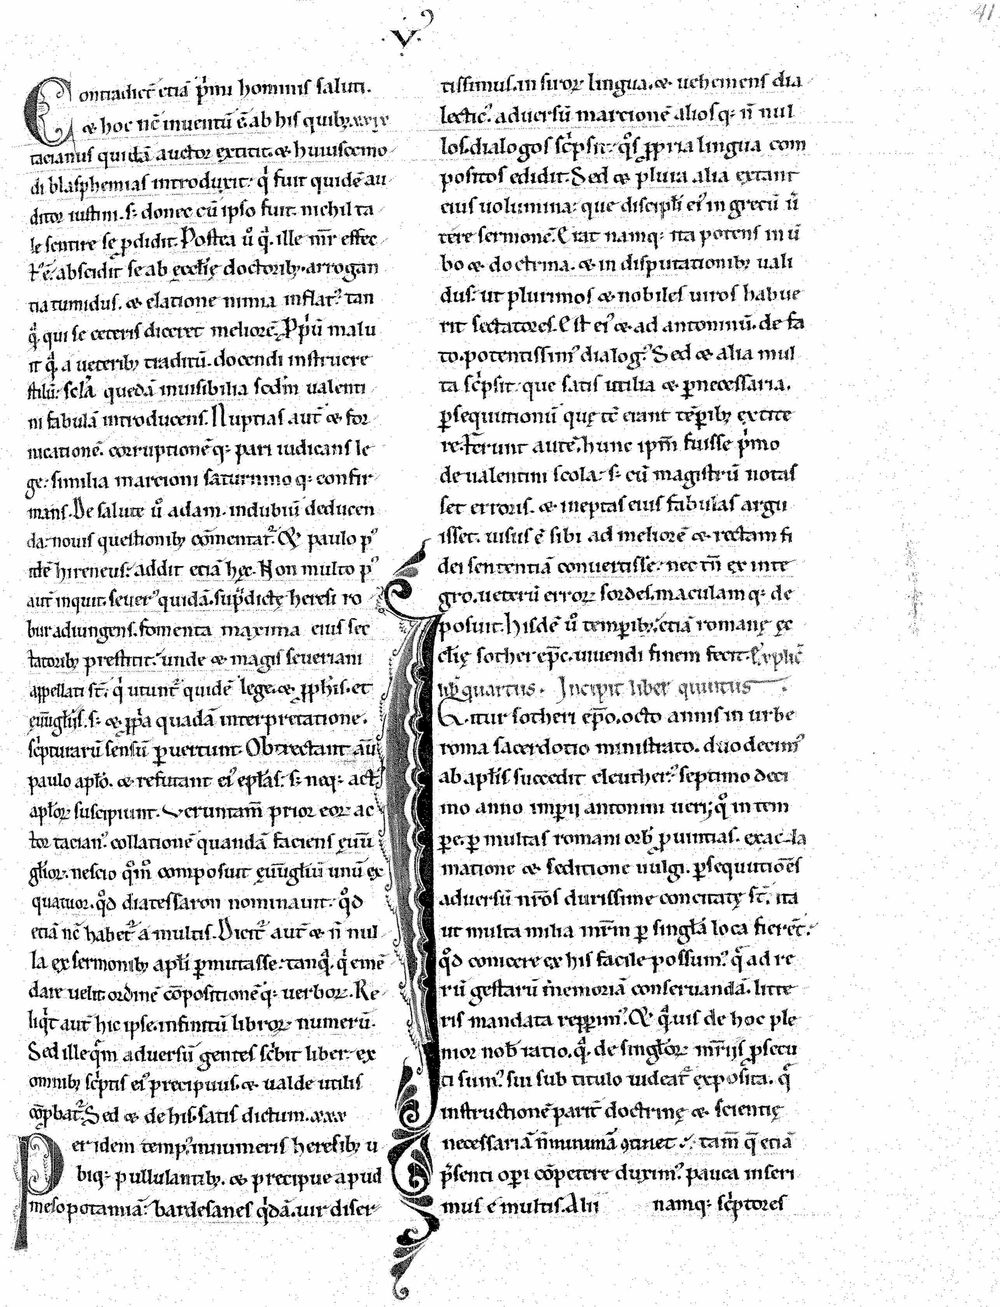 ·v·
41
Contradicẽ etiã p̾mi hominis saluti.
⁊ hoc nc̃ inventũ ẽ ab his quibꝫ. xxix
tacianus quidã auctor extitit. ⁊ huiuscemo
di blasphemias introduxit: q̾ fuit quidẽ au
ditor iustini. s; donec cũ ipso fuit. nichil ta
le sentire se ꝓdidit. Postea ũ q̃. ille mr̃ effec
t᷒ ẽ. abscidit se ab ęcclię doctoribꝫ. arrogan
tia tumidus. ⁊ elatione nimia inflat᷒. tan
q̃. qui se ceteris diceret meliorẽ. Ppriũ malu
it q̃ a ueteribꝫ traditũ. docendi instruere
stilũ: scl̃a quedã inuisibilia scdm̃ ualenti
ni fabulã introducens. Nuptias aut̃ ⁊ for
nicationẽ. corruptionẽq; pari iudicans le
ge: similia marcioni saturninoq; confir
mans. De salute ũ adam. indubiũ deducen
da: nouis questionibꝫ cõmentat᷒. Et paulo p᷒
idẽ hireneus: addit etiã hęc. Non multo p᷒
aut̃ inquit. seuer᷒ quidã. sup̃dictę heresi ro
bur adiungens. fomenta maxima eius sec
tatoribꝫ prestitit: unde ⁊ magis seueriani
appellati st̃. q̾ utunt᷒ quidẽ lege. ⁊ ꝓphis. et
euũgliis. s; ⁊ ꝓp̃a quadã interpretatione.
sc̾pturarũ sensũ ꝑuertunt. Obtrectant aũ
paulo aplõ. ⁊ refutant ei᷒ epl̃as. s; neq; act᷒
aplõr suscipiunt. Veruntam̃ prior eor ac
tor tacian᷒. collationẽ quandã faciens euũ
glior. nescio qm̃ composuit euũgliũ unũ ex
quatuor. qd̃ diatessaron nominauit: qd̃
etiã nc̃ habet᷒ a multis. Dicit᷒ aut̃ ⁊ ñ nul
la ex sermonibꝫ apl̃i ꝑmutasse: tanq̃. q̾ emẽ
dare uelit ordinẽ cõpositionẽq; uerbor. Re
liqt aut̃ hic ipse. infinitũ libror numerũ.
Sed ille qm̃ aduersũ gentes sc̾bit liber. ex
omnibꝫ sc̾ptis ei᷒ precipuus. ⁊ ualde utilis
cõpbat᷒. Sed ⁊ de his. satis dictum. xxx
Per idem temp᷒. innumeris heresibꝫ u
biq; pullulantibꝫ. ⁊ precipue apud
mesopotamiã: bardesanes qdã. uir diser
tissimus. in siror lingua. ⁊ uehemens dia
lectic᷒. aduersũ marcionẽ aliosq; ñ nul
los. dialogos sc̾psit: qs̃ ꝓpria lingua com
positos edidit. Sed ⁊ plura alia extant
eius uolumina: que discipl̃i ei᷒ in grecũ ũ
tere sermonẽ. Erat namq; ita potens in ũ
bo ⁊ doctrina. ⁊ in disputationibꝫ uali
dus: ut plurimos ⁊ nobiles uiros habue
rit sectatores. Est ei᷒ ⁊. ad antoninũ. de fa
to. potentissim᷒ dialog᷒. Sed ⁊ alia mul
ta sc̾psit: que satis utilia ⁊ ꝑnecessaria.
ꝑsequutionũ quę tc̃ erant tẽꝑibꝫ extite
re. Ferunt autẽ. hunc ipm̃ fuisse p̾mo
de ualentini scola: s; cũ magistrũ notas
set erroris. ⁊ ineptas eius fabulas argu
isset. uisus ẽ sibi ad meliorẽ ⁊ rectam fi
dei sententiã conuertisse: nec tñ ex inte
gro. ueterũ error sordes. maculamq; de
posuit. hisdẽ ũ temꝑibꝫ. etiã romanę ęc
clię sother epc̃. uiuendi finem fecit. Explic̃
lib̃ quartus. Incipit liber quintus.
Igitur sotheri epõ. octo annis in urbe
roma sacerdotio ministrato. duodecim᷒
ab apl̃is succedit eleuther᷒. septimo deci
mo anno imperii antonini ueri; q̊ in tem
pe. ꝑ multas romani orb̃ ꝓuintias. excla
matione ⁊ seditione uulgi. ꝑsequutiões
aduersũ nr̃os durissime concitatę st̃. ita
ut multa milia mr̃m ꝑ singl̃a loca fierẽt:
qd̃ conicere ex his facile possum᷒. q̃ ad re
rũ gestarũ memoriã conseruandã. litte
ris mandata repperim᷒. Et q̃uis de hoc ple
nior nob̃ ratio. q̃. de singl̃or mr̃iis ꝓsecu
ti sum᷒. sui sub titulo uideat᷒ exposita. q̃
instructionẽ parit̃ doctrinę ⁊ scientię
necessariã ñ minimã ꝯtinet: tam̃ q̃ etiã
p̾senti opi cõpetere duxim᷒. pauca inseri
mus e multis. Alii namq; sc̾ptores